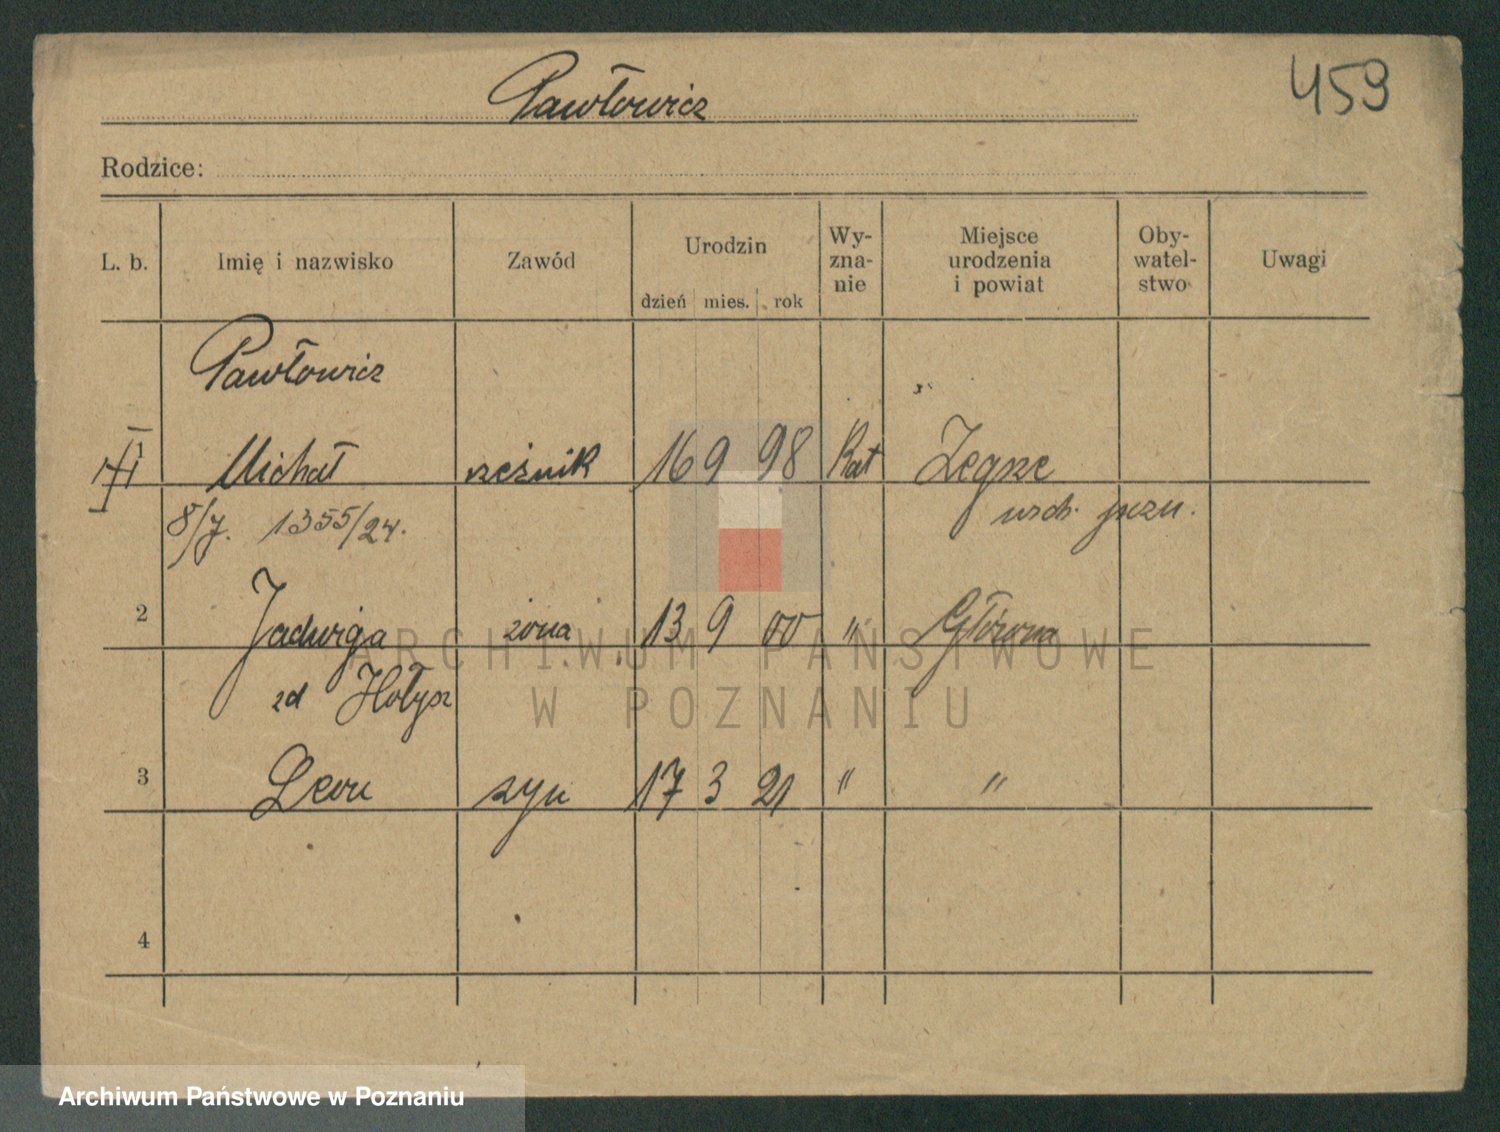 Pawłowicz
459
Rodzice:
L. b. Imię i nazwisko Zawód Urodzin dzień mies. rok Wy- zna- nie Miejsce urodzenia i powiat Oby- watel- stwo Uwagi
Pawłowicz
1 Michał rzeźnik 16 9 98 Kat Zegrze
8/7. 1355/24. wsch. pozn.
2 Jadwiga żona 13 9 00 " Główna
zd Hołysz
3 Leon syn 17 3 21 " "
4
ARCHIWUM PAŃSTWOWE
W POZNANIU
Archiwum Państwowe w Poznaniu